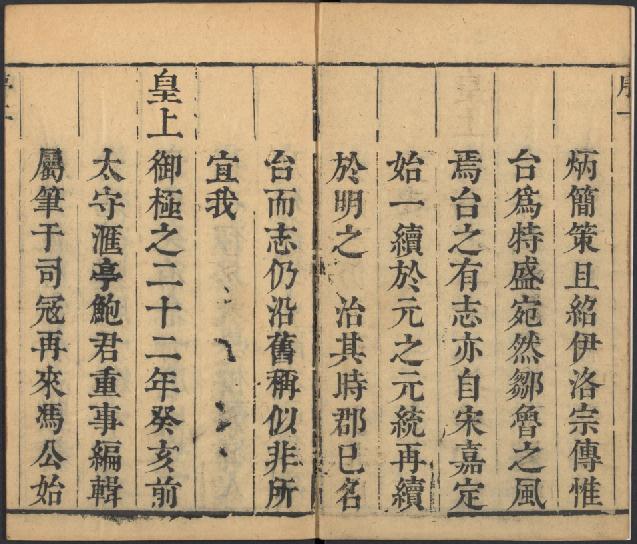 炳簡策且紹伊洛宗傳惟
台爲特盛宛然鄒魯之風
焉台之有志亦自宋嘉定
始一續於元之元統再續
於明之 治其時郡已名
台而志仍沿舊稱似非所
宜我
皇上御極之二十二年癸亥前
太守滙亭鮑君重事編輯
屬筆于司冦再來馮公始